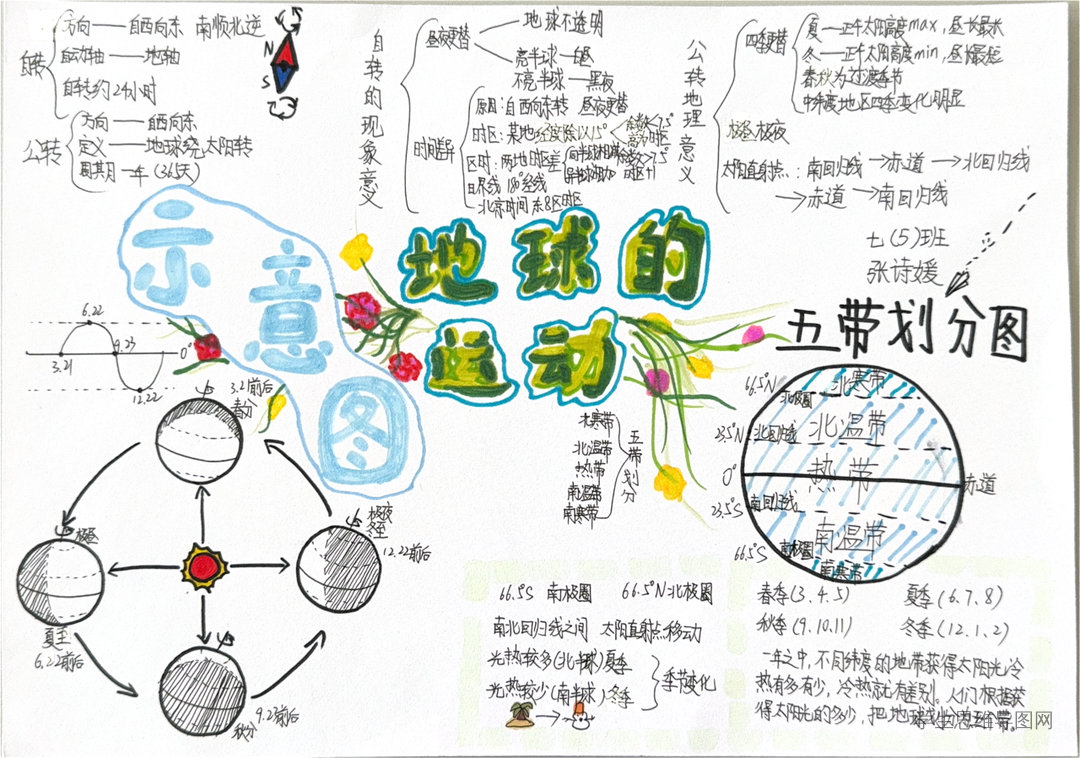 自转
方向——自西向东 南顺北逆
自动轴——地轴
自转约24小时
N
S
公转
方向——自西向东
定义——地球绕太阳转
周期 一年(365天)
自转的现象意义
昼夜更替
地球不透明
亮半球——白昼
不亮半球——黑夜
时间差异
原因:自西向东转 昼夜更替
时区:某地经度除以15°
区时:两地时区差
日界线 180°经线
北京时间 东8区时区
公转地理意义
四季更替
夏——正午太阳高度max,昼长最长
冬——正午太阳高度min,昼长最短
春秋为过渡季节
中纬度地区四季变化明显
极昼极夜
太阳直射点:南回归线→赤道→北回归线
→赤道→南回归线
七(5)班
张诗媛
示意图
地球的
运动
五带划分图
6.22
3.21
9.23
0°
12.22
3.21前后
春分
极昼
夏至
6.22前后
极夜
冬至
12.22前后
9.23前后
秋分
五带划分
北寒带
北温带
热带
南温带
南寒带
66.5°N
北极圈
北寒带
23.5°N
北回归线
北温带
0°
热带
赤道
23.5°S
南回归线
南温带
66.5°S
南极圈
南寒带
66.5°S 南极圈 66.5°N北极圈
南北回归线之间 太阳直射点移动
光热较多(北半球)夏季
光热较少(南半球)冬季
季节变化
春季(3.4.5) 夏季(6.7.8)
秋季(9.10.11) 冬季(12.1.2)
一年之中,不同纬度的地带获得太阳光冷
热有多有少,冷热就有差别。人们根据获
得太阳光的多少,把地球划分为五带。